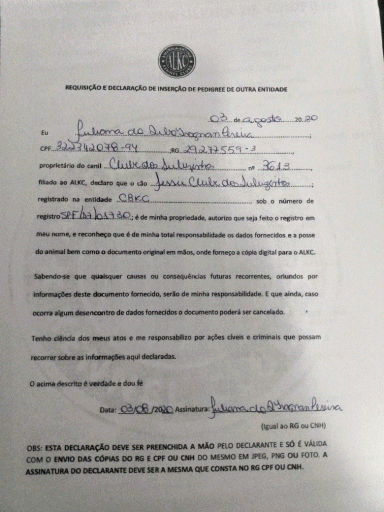 ALKC
REQUISIÇÃO E DECLARAÇÃO DE INSERÇÃO DE PEDIGREE DE OUTRA ENTIDADE
03 de agosto 2020
Eu Juliana da Silva Pereira
CPF 322342078-94 RG 29277559-3
proprietário do canil Clube dos nº 3613
filiado ao ALKC, declaro que o cão Clube dos
registrado na entidade CBKC sob o número de
registro SPF/17/01730; é de minha propriedade, autorizo que seja feito o registro em
meu nome, e reconheço que é de minha total responsabilidade os dados fornecidos e a posse
do animal bem como o documento original em mãos, onde forneço a cópia digital para o ALKC.
Sabendo-se que quaisquer causas ou consequências futuras recorrentes, oriundos por
informações deste documento fornecido, serão de minha responsabilidade. E que ainda, caso
ocorra algum desencontro de dados fornecidos o documento poderá ser cancelado.
Tenho ciência dos meus atos e me responsabilizo por ações cíveis e criminais que possam
recorrer sobre as informações aqui declaradas.
O acima descrito é verdade e dou fé
Data: 03/08/2020 Assinatura: Juliana da S Pereira
(Igual ao RG ou CNH)
OBS: ESTA DECLARAÇÃO DEVE SER PREENCHIDA A MÃO PELO DECLARANTE E SÓ É VÁLIDA
COM O ENVIO DAS CÓPIAS DO RG E CPF OU CNH DO MESMO EM JPEG, PNG OU FOTO. A
ASSINATURA DO DECLARANTE DEVE SER A MESMA QUE CONSTA NO RG CPF OU CNH.